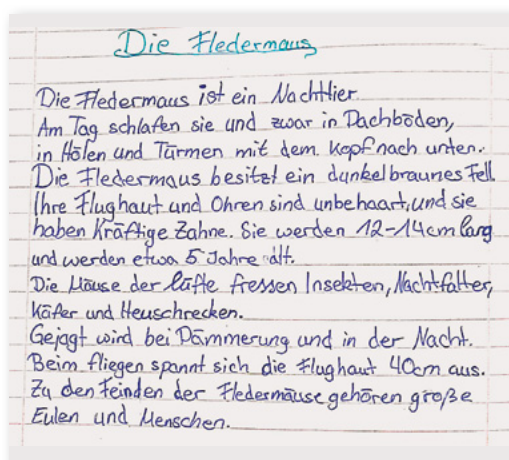 Die Fledermaus
Die Fledermaus ist ein Nachttier.
Am Tag schlafen sie und zwar in Dachböden,
in Hölen und Türmen mit dem Kopf nach unten.
Die Fledermaus besitzt ein dunkelbraunes Fell
Ihre Flughaut und Ohren sind unbehaart, und sie
haben kräftige Zähne. Sie werden 12-14cm lang
und werden etwa 5 Jahre alt.
Die Mäuse der Lüfte fressen Insekten, Nachtfalter,
Käfer und Heuschrecken.
Gejagt wird bei Dämmerung und in der Nacht.
Beim fliegen spannt sich die Flughaut 40cm aus.
Zu den Feinden der Fledermäuse gehören große
Eulen und Menschen.